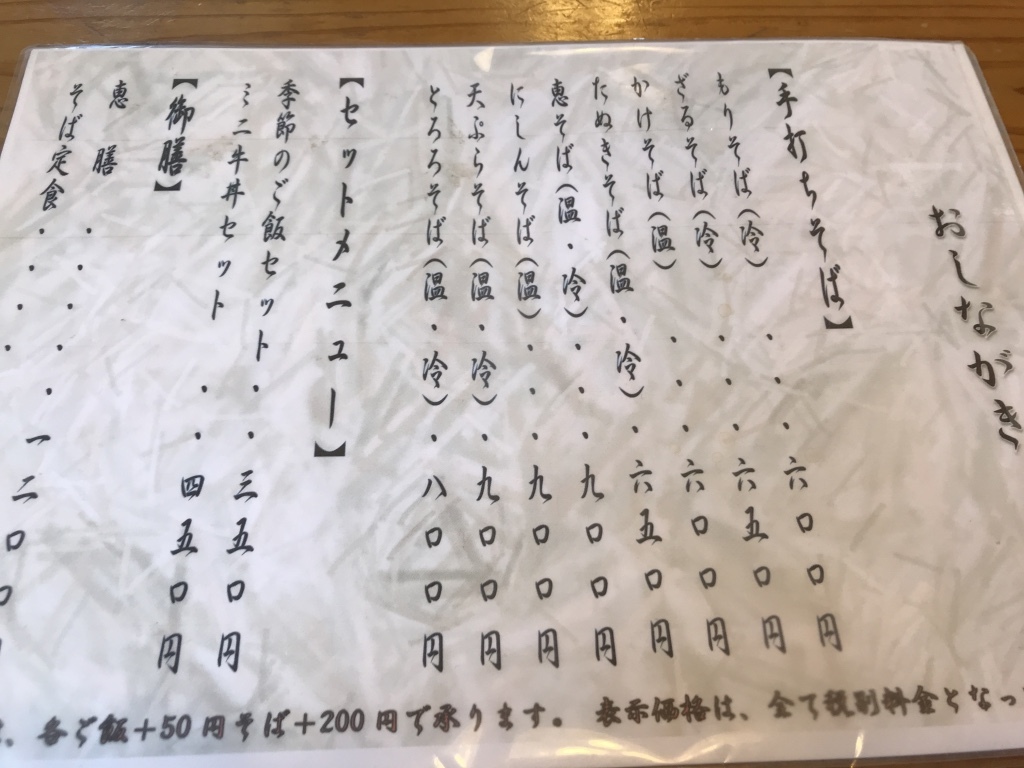 おしながき
【手打ちそば】
もりそば(冷)・・・六〇〇円
ざるそば(冷)・・・六五〇円
かけそば(温)・・・六〇〇円
たぬきそば(温・冷)・六五〇円
恵そば(温・冷)・・・九〇〇円
にしんそば(温)・・・九〇〇円
天ぷらそば(温・冷)・九〇〇円
とろろそば(温・冷)・八〇〇円
【セットメニュー】
季節のご飯セット・・三五〇円
ミニ牛丼セット・・四五〇円
【御膳】
恵 膳・・・・・一二〇〇
そば定食・・・・
、各ご飯+50円そば+200円で承ります。 表示価格は、全て税別料金となっ